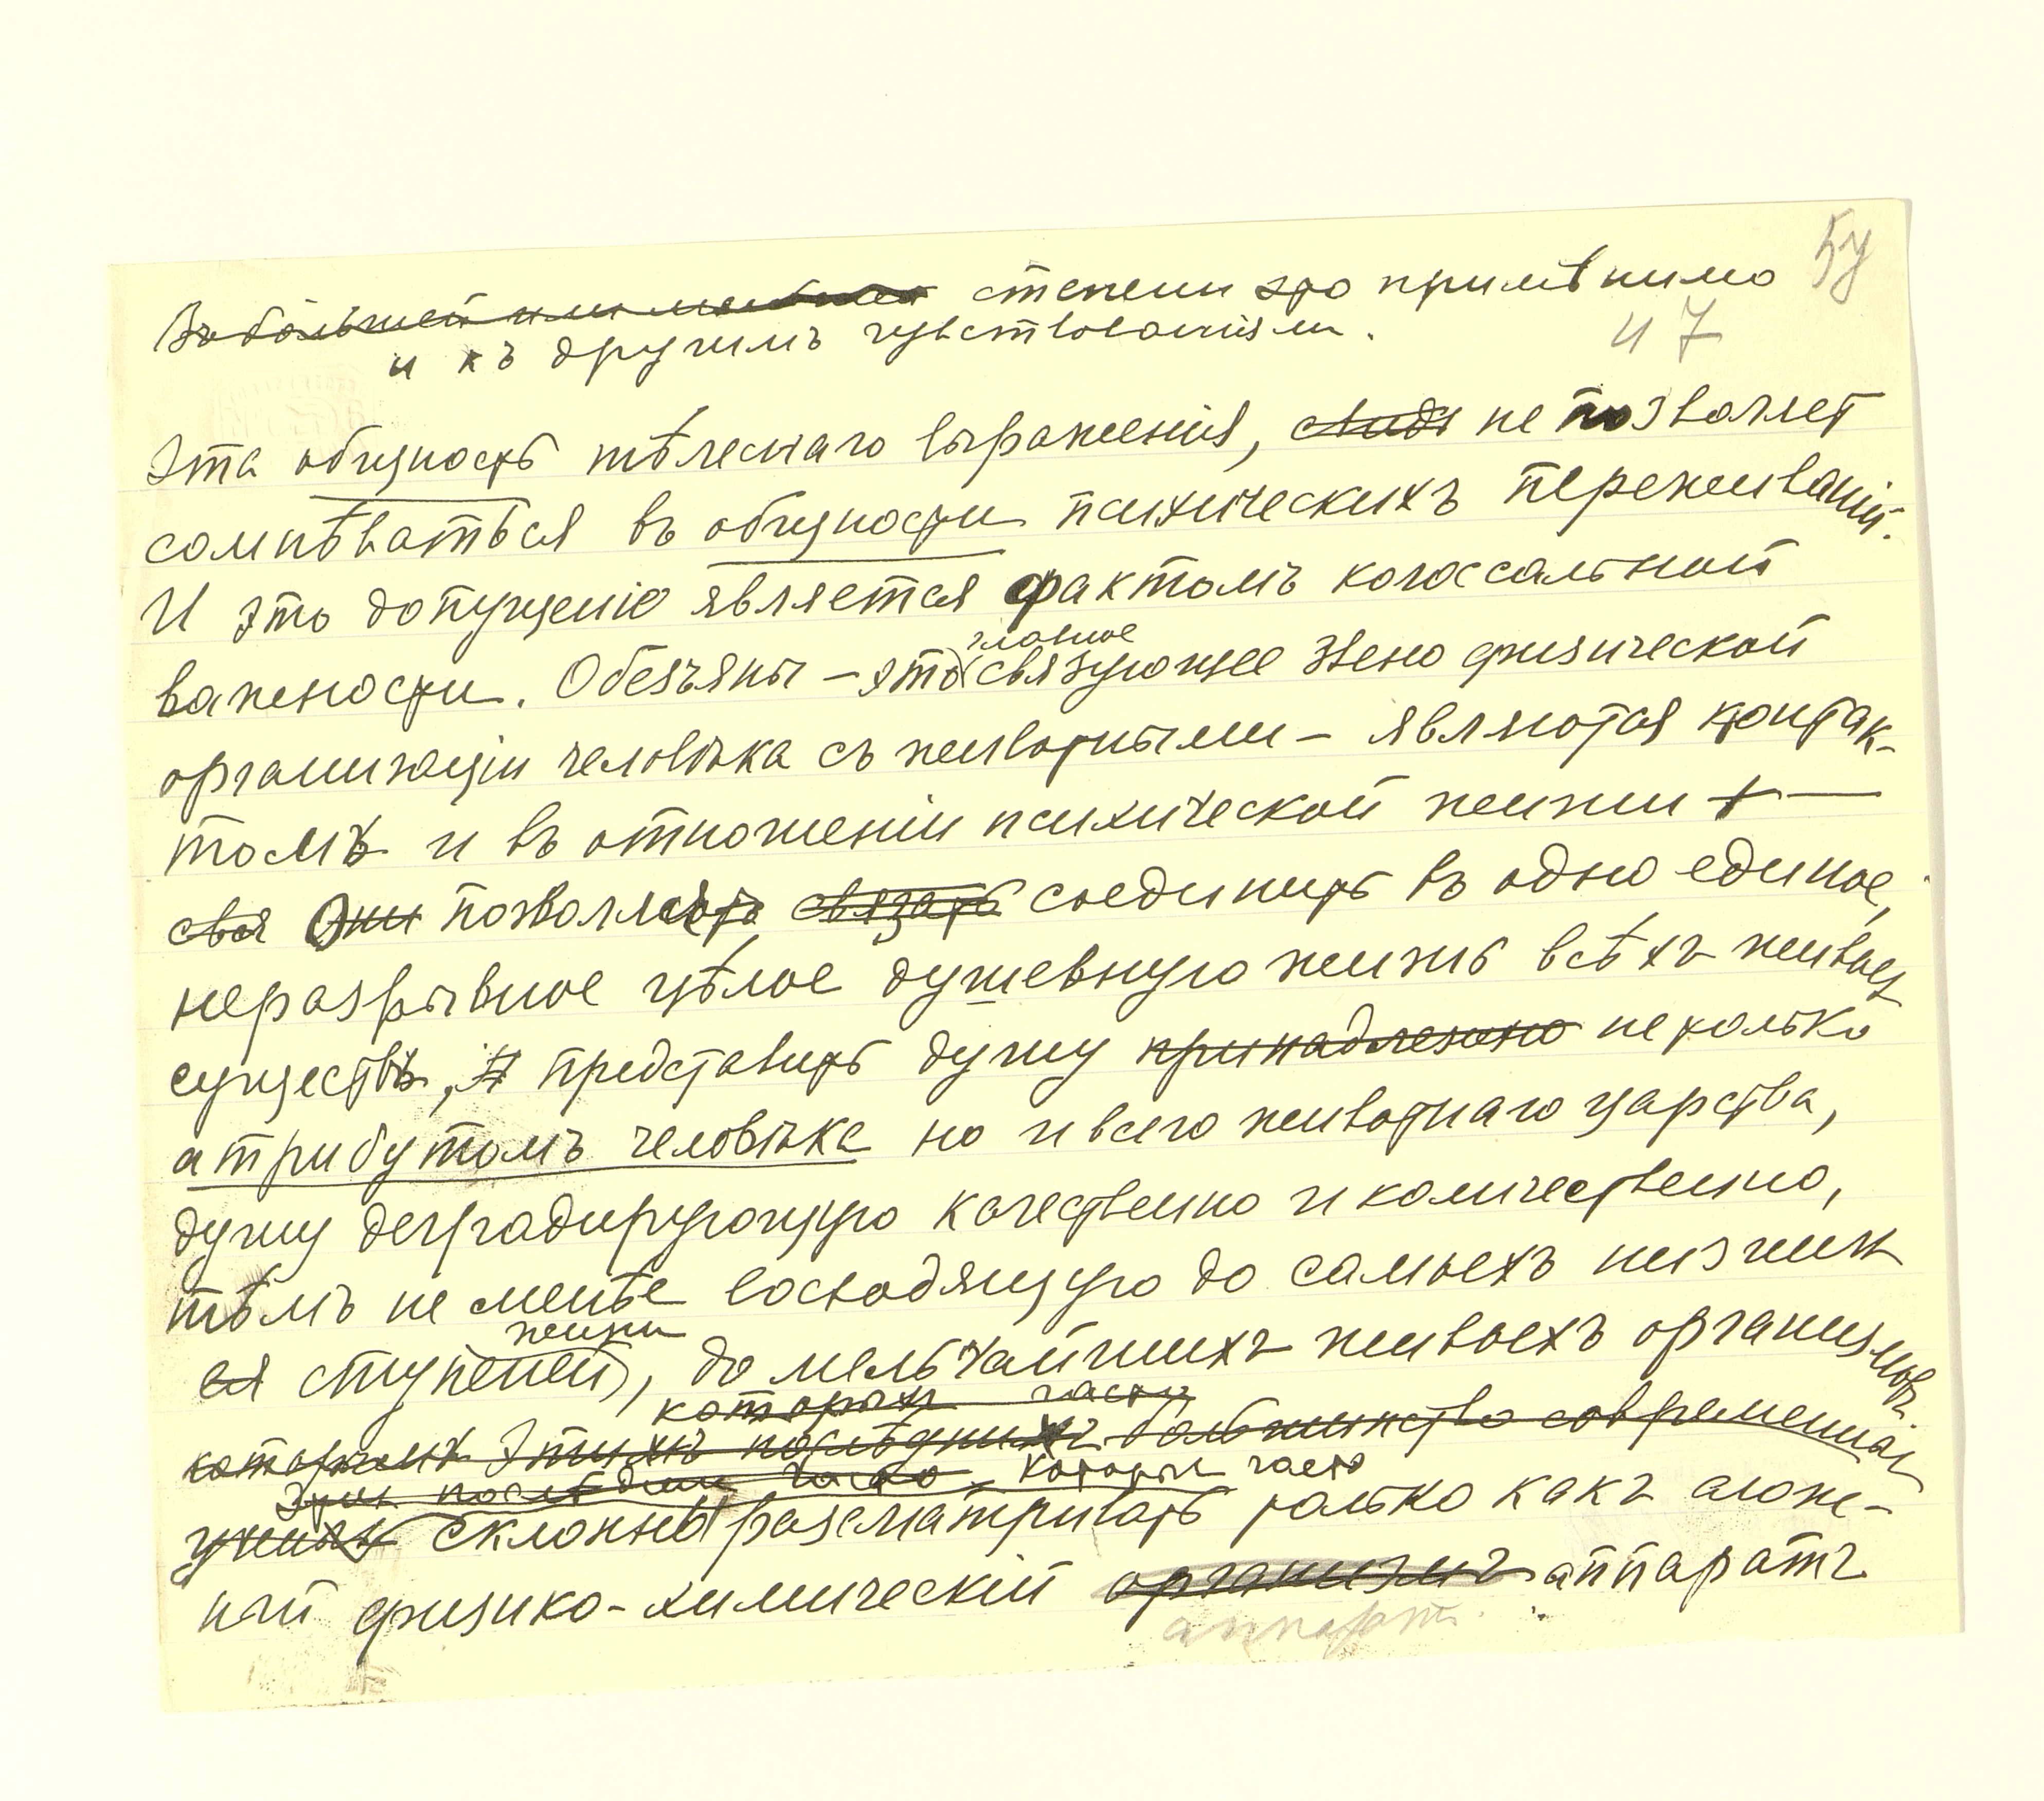 Въ большей или меньшей степени это примѣнимо 57
и къ другимъ чувствованіям. 47
Эта общность тѣлеснаго выраженія, не позволяет
сомнѣваться въ общности психическихъ переживаній.
И это допущеніе является фактомъ колоссальной
главное
важности. Обезъяны – это связующее звено физической
организаціи человѣка съ животными – являются контак-
томъ и въ отношеніи психической жизни + —
свя Они позволяютъ связать соединить въ одно единое,
неразрывное цѣлое душевную жизнь всѣхъ живых
существъ, и представить душу принадлежно не только
атрибутомъ человѣка но и всего животнаго царства,
душу деградирующую качественно и количественно,
тѣмъ не менѣе восходящую до самыхъ низших
жизни
ея ступеней, до мельчайшихъ живыхъ организмовъ.
которых часто
которыхъ Этихъ последнихъ большинство современных
Эти последние часто, которые часто
ученых склонны разсматривать только какъ слож-
ный физико-химическій организмъ аппаратъ
аппарат.